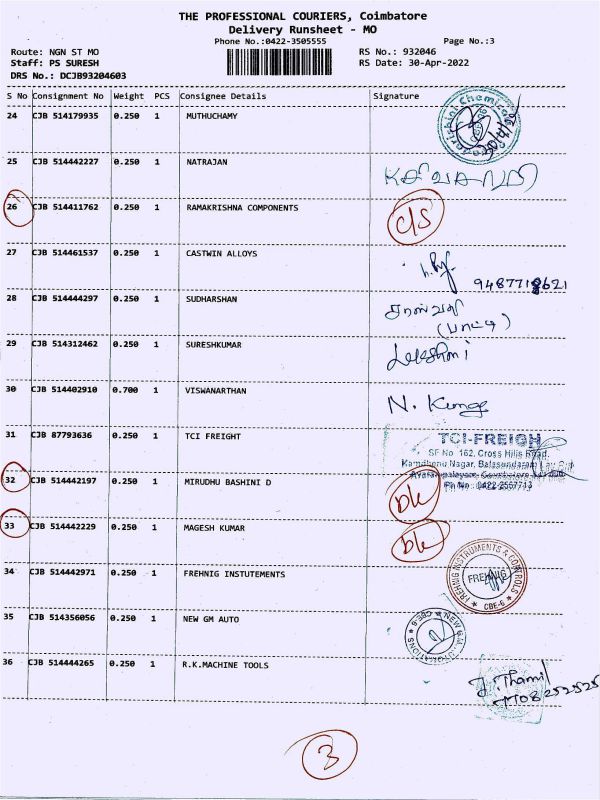 THE PROFESSIONAL COURIERS, Coimbatore
Delivery Runsheet - MO
Phone No.:0422-3505555 Page No.:3
Route: NGN ST MO RS No.: 932046
Staff: PS SURESH RS Date: 30-Apr-2022
DRS No.: DCJB93204603
S No Consignment No Weight PCS Consignee Details Signature
24 CJB 514179935 0.250 1 MUTHUCHAMY
25 CJB 514442227 0.250 1 NATRAJAN
26 CJB 514411762 0.250 1 RAMAKRISHNA COMPONENTS C/S
27 CJB 514461537 0.250 1 CASTWIN ALLOYS
9487718621
28 CJB 514444297 0.250 1 SUDHARSHAN சரஸ்வதி
(பாட்டி)
29 CJB 514312462 0.250 1 SURESHKUMAR Lakshmi
30 CJB 514402910 0.700 1 VISWANARTHAN N.
31 CJB 87793636 0.250 1 TCI FREIGHT TCI-FREIGH
SF No 162, Cross Hills Road,
Kamdhenu Nagar, Balasundaram
Ph No 0422-2557713
32 CJB 514442197 0.250 1 MIRUDHU BASHINI D DL
33 CJB 514442229 0.250 1 MAGESH KUMAR DL
34 CJB 514442971 0.250 1 FREHNIG INSTUTEMENTS FREHNIG INSTRUMENTS & CONTROLS
FREHNIG
CBE-6
35 CJB 514356056 0.250 1 NEW GM AUTO
36 CJB 514444265 0.250 1 R.K.MACHINE TOOLS J. Thamil
3